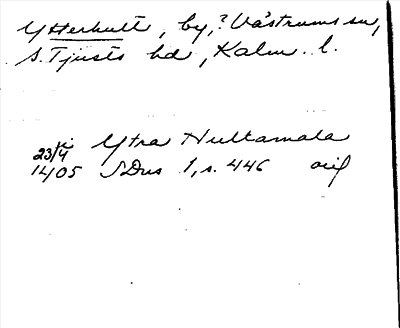 Ytterhult, by, ? Västrums sn,
S. Tjusts hd, Kalm. l.
i Ytra Hultamala
23/4
1405 SDns 1, s. 446 orig